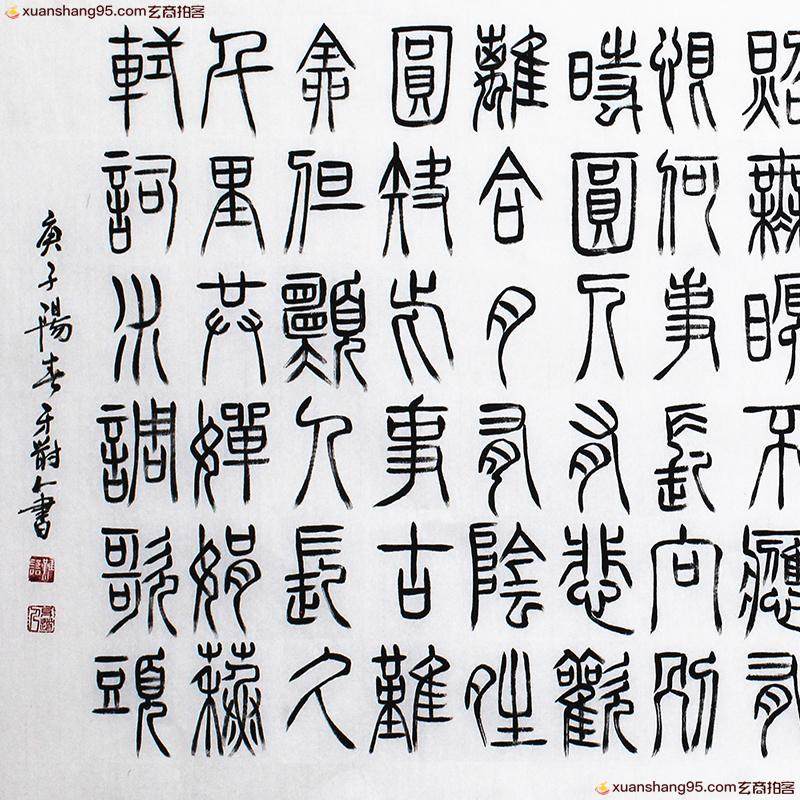 xuanshang95.com玄商拍客
照無眠不應有
恨何事長向別
時圓人有悲歡
離合月有陰夝
圓缺此事古難
全但願人長久
千里共嬋娟蘇
軾詞水調歌頭
庚子陽春書
xuanshang95.com玄商拍客